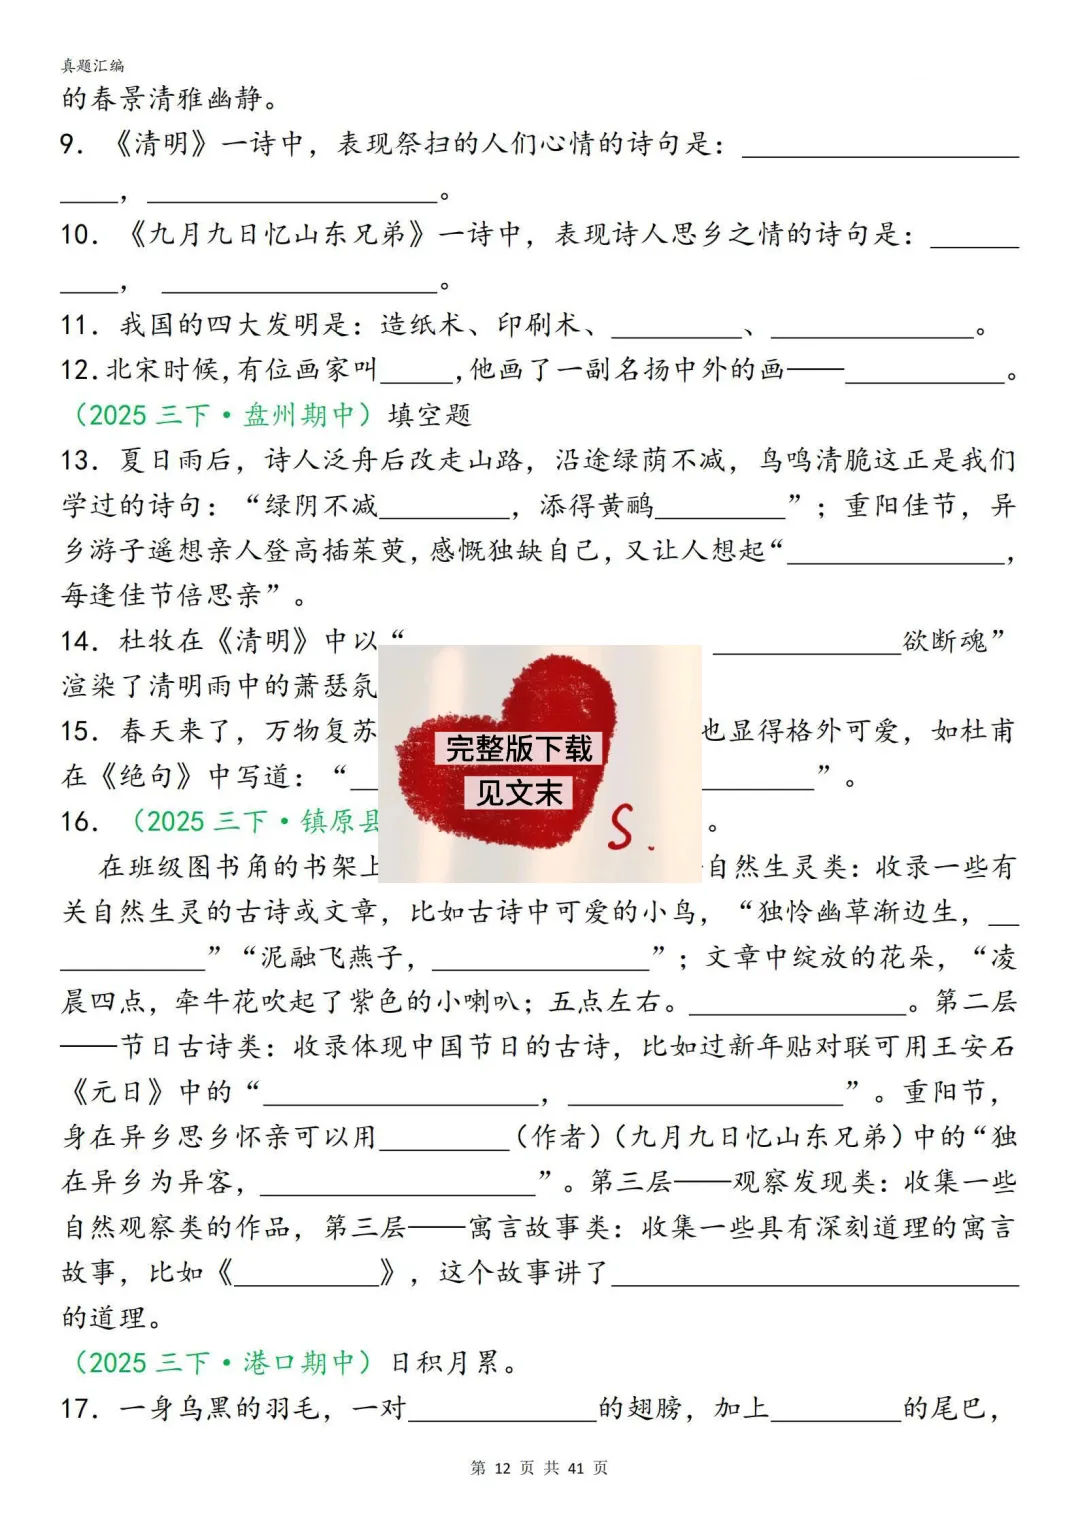 真题汇编
的春景清雅幽静。
9. 《清明》一诗中，表现祭扫的人们心情的诗句是：___________________
____，____________________。
10. 《九月九日忆山东兄弟》一诗中，表现诗人思乡之情的诗句是：______
____， ___________________。
11. 我国的四大发明是：造纸术、印刷术、_________、______________。
12.北宋时候,有位画家叫_____,他画了一副名扬中外的画——___________。
（2025 三下·盘州期中）填空题
13. 夏日雨后，诗人泛舟后改走山路，沿途绿荫不减，鸟鸣清脆这正是我们
学过的诗句：“绿阴不减_________，添得黄鹂_________”；重阳佳节，异
乡游子遥想亲人登高插茱萸,感慨独缺自己,又让人想起“_______________,
每逢佳节倍思亲”。
14. 杜牧在《清明》中以“__________________ _____________欲断魂”
渲染了清明雨中的萧瑟氛
15. 春天来了，万物复苏 也显得格外可爱，如杜甫
在《绝句》中写道：“__ ________”。
完整版下载
见文末
S.
16. （2025 三下·镇原县 。
在班级图书角的书架上 自然生灵类：收录一些有
关自然生灵的古诗或文章，比如古诗中可爱的小鸟，“独怜幽草渐边生，__
__________”“泥融飞燕子，_______________”；文章中绽放的花朵，“凌
晨四点，牵牛花吹起了紫色的小喇叭；五点左右。_______________。第二层
——节日古诗类：收录体现中国节日的古诗，比如过新年贴对联可用王安石
《元日》中的“___________________，___________________”。重阳节，
身在异乡思乡怀亲可以用_________（作者）（九月九日忆山东兄弟）中的“独
在异乡为异客，___________________”。第三层——观察发现类：收集一些
自然观察类的作品，第三层——寓言故事类：收集一些具有深刻道理的寓言
故事，比如《__________》，这个故事讲了____________________________
的道理。
（2025 三下·港口期中）日积月累。
17. 一身乌黑的羽毛，一对_____________的翅膀，加上_________的尾巴，
第 12 页 共 41 页